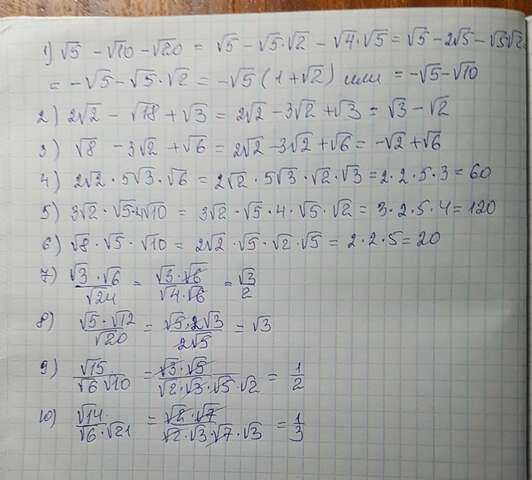 1) √5 - √10 - √20 = √5 - √5·√2 - √4·√5 = √5 - 2√5 - √5√2
= -√5 - √5·√2 = -√5 (1+√2) или = -√5-√10
2) 2√2 - √18 + √3 = 2√2 - 3√2 + √3 = √3 - √2
3) √8 - 3√2 + √6 = 2√2 - 3√2 + √6 = -√2 + √6
4) 2√2 · 5√3 · √6 = 2√2 · 5√3 · √2 · √3 = 2·2·5·3 = 60
5) 3√2 · √5 · 4√10 = 3√2 · √5 · 4 · √5 · √2 = 3·2·5·4 = 120
6) √8 · √5 · √10 = 2√2 · √5 · √2 · √5 = 2·2·5 = 20
7) (√3 · √6)/√24 = (√3 · √6)/(√4 · √6) = √3/2
8) (√5 · √12)/√20 = (√5 · 2√3)/(2√5) = √3
9) √15/(√6 √10) = (√3 · √5)/(√2 · √3 · √5 · √2) = 1/2
10) √14/(√6 · √21) = (√2 · √7)/(√2 · √3 · √7 · √3) = 1/3